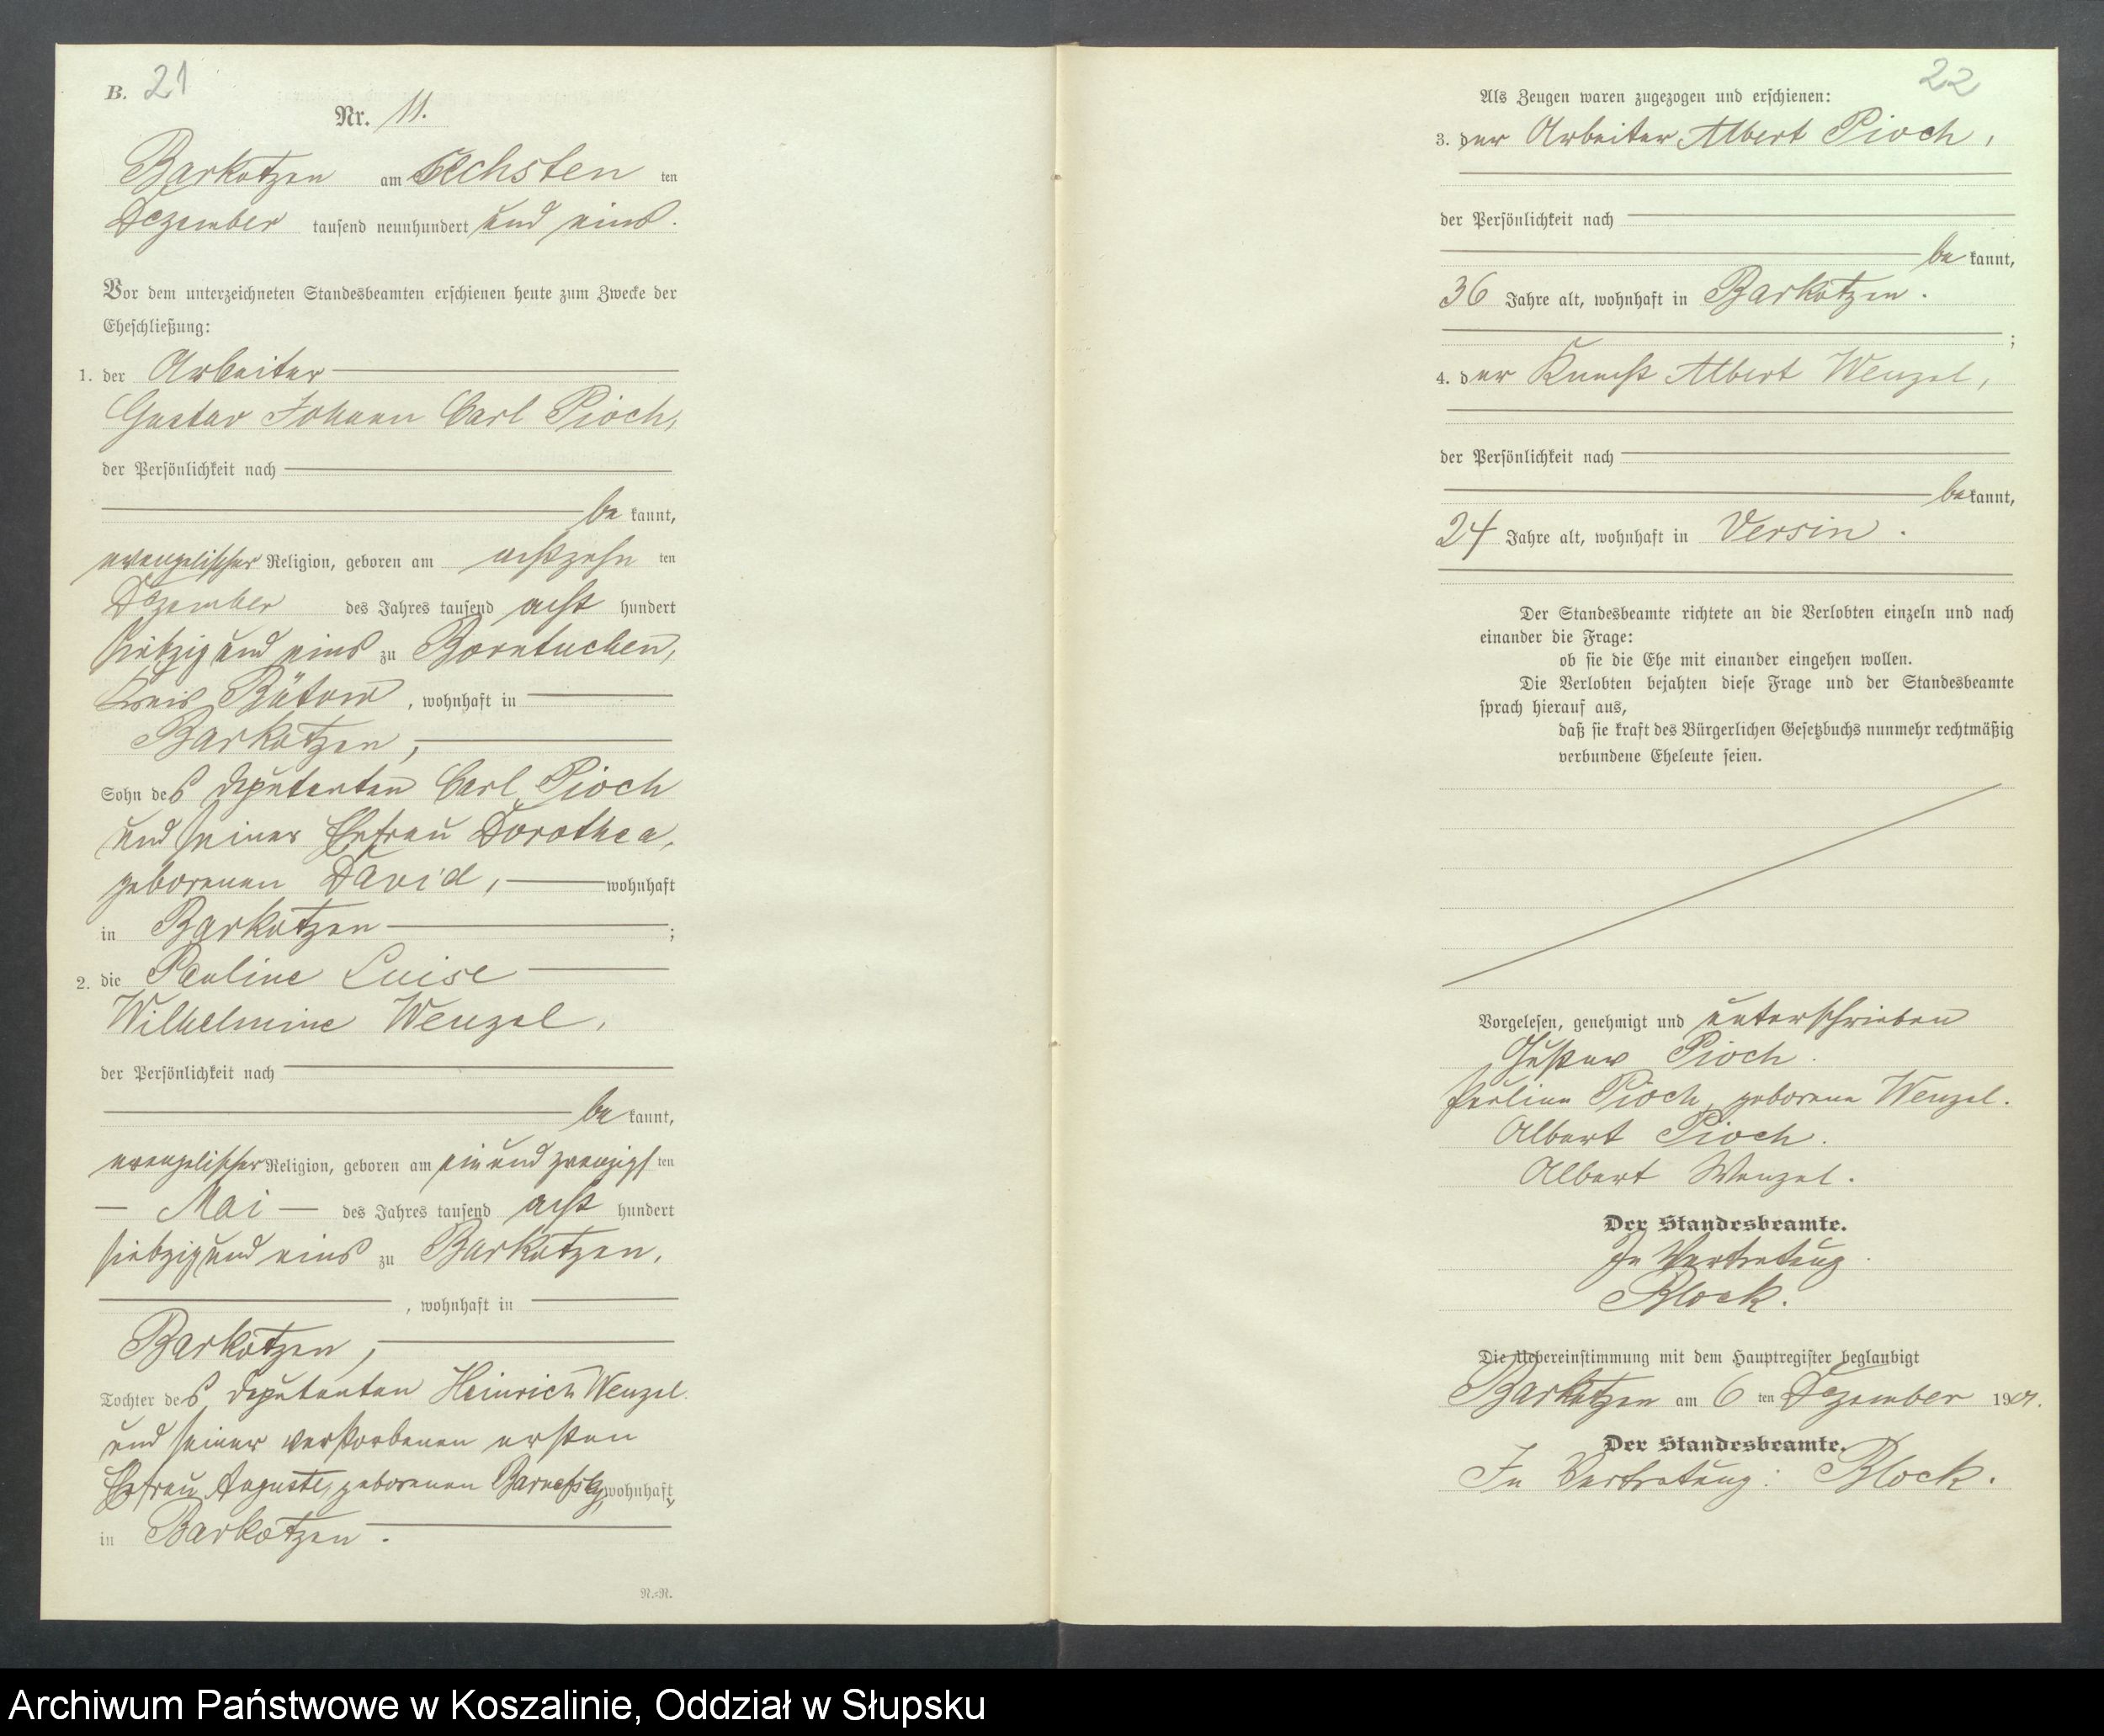 B. 21
Nr. 11.
Barkotzen am sechsten ten
Dezember tausend neunhundert und eins.
Vor dem unterzeichneten Standesbeamten erschienen heute zum Zwecke der
Eheschließung:
1. der Arbeiter
Gustav Johann Carl Pioch,
der Persönlichkeit nach
be kannt,
evangelischer Religion, geboren am achtzehn ten
Dezember des Jahres tausend acht hundert
siebzig und eins zu Borntuchen,
Kreis Bütow, wohnhaft in
Barkotzen,
Sohn des Deputanten Carl Pioch
und seiner Ehefrau Dorothea,
geborenen David, wohnhaft
in Barkotzen ;
2. die Pauline Luise
Wilhelmine Wenzel,
der Persönlichkeit nach
be kannt,
evangelischer Religion, geboren am ein und zwanzigs ten
— Mai — des Jahres tausend acht hundert
siebzig und eins zu Barkotzen,
, wohnhaft in
Barkotzen,
Tochter des Deputanten Heinrich Wenzel
und seiner verstorbenen ersten
Ehefrau Auguste, geborenen wohnhaft,
in Barkotzen.
N.=N.
22
Als Zeugen waren zugezogen und erschienen:
3. der Arbeiter Albert Pioch,
der Persönlichkeit nach
be kannt,
36 Jahre alt, wohnhaft in Barkotzen.
;
4. der Knecht Albert Wenzel,
der Persönlichkeit nach
bekannt,
24 Jahre alt, wohnhaft in Versin.
Der Standesbeamte richtete an die Verlobten einzeln und nach
einander die Frage:
ob sie die Ehe mit einander eingehen wollen.
Die Verlobten bejahten diese Frage und der Standesbeamte
sprach hierauf aus,
daß sie kraft des Bürgerlichen Gesetzbuchs nunmehr rechtmäßig
verbundene Eheleute seien.
Vorgelesen, genehmigt und unterschrieben
Gustav Pioch.
Pauline Pioch, geborene Wenzel.
Albert Pioch.
Albert Wenzel.
Der Standesbeamte.
In Vertretung
Block.
Die Uebereinstimmung mit dem Hauptregister beglaubigt
Barkotzen am 6 ten Dezember 1901.
Der Standesbeamte.
In Vertretung: Block.
Archiwum Państwowe w Koszalinie, Oddział w Słupsku